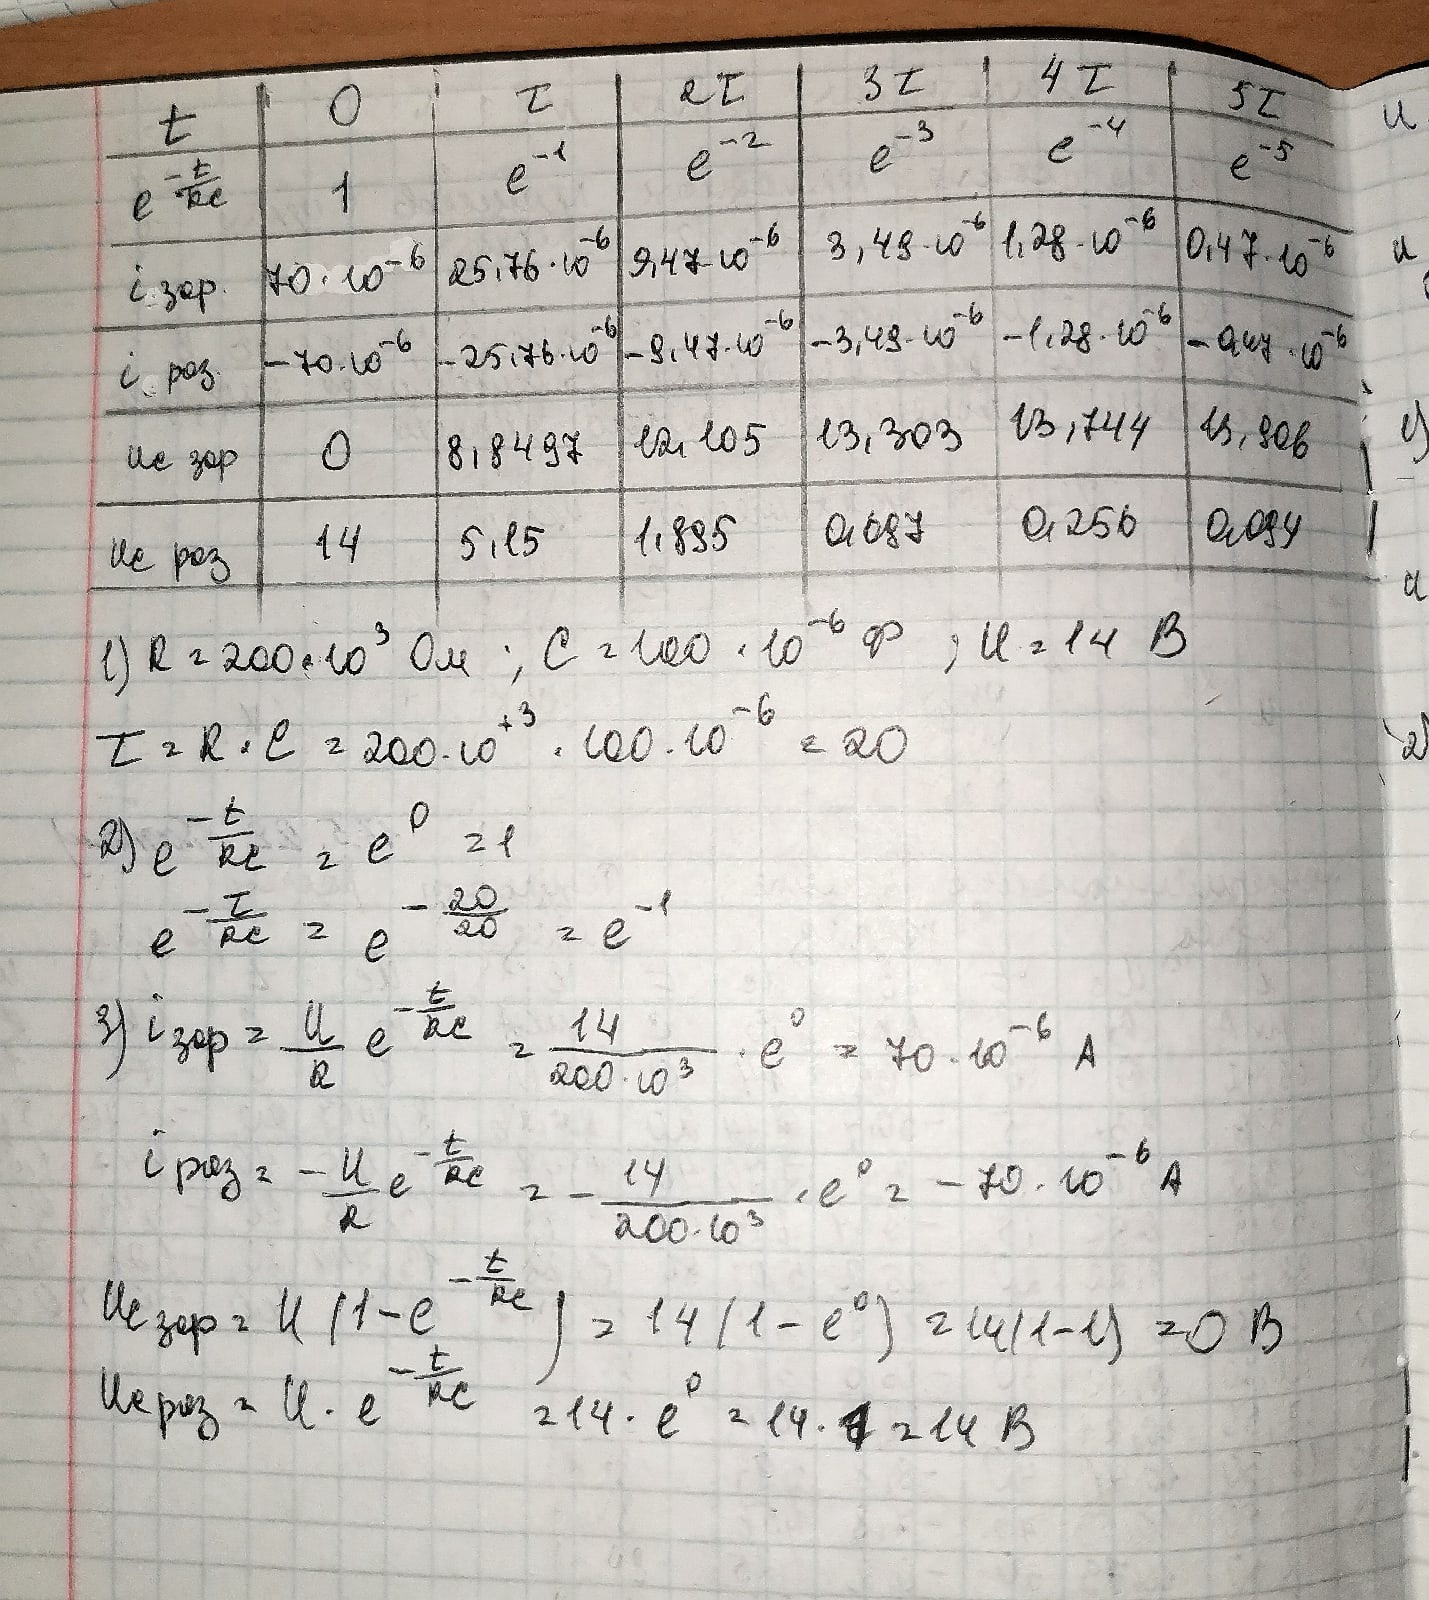 t | 0 | τ | 2τ | 3τ | 4τ | 5τ
e^(-t/RC) | 1 | e^-1 | e^-2 | e^-3 | e^-4 | e^-5
i зар. | 70·10^-6 | 25,76·10^-6 | 9,47·10^-6 | 3,49·10^-6 | 1,28·10^-6 | 0,47·10^-6
i раз. | -70·10^-6 | -25,76·10^-6 | -9,47·10^-6 | -3,49·10^-6 | -1,28·10^-6 | -0,47·10^-6
Uc зар | 0 | 8,8497 | 12,105 | 13,303 | 13,744 | 13,906
Uc раз | 14 | 5,15 | 1,895 | 0,697 | 0,256 | 0,094
1) R = 200·10^3 Ом ; C = 100·10^-6 Ф ; U = 14 В
τ = R·C = 200·10^+3 · 100·10^-6 = 20
2) e^(-t/RC) = e^0 = 1
e^(-τ/RC) = e^(-20/20) = e^-1
3) i зар = U/R e^(-t/RC) = 14/(200·10^3) · e^0 = 70·10^-6 А
i раз = -U/R e^(-t/RC) = -14/(200·10^3) · e^0 = -70·10^-6 А
Uc зар = U (1-e^(-t/RC)) = 14 (1-e^0) = 14(1-1) = 0 В
Uc раз = U · e^(-t/RC) = 14 · e^0 = 14 · 1 = 14 В